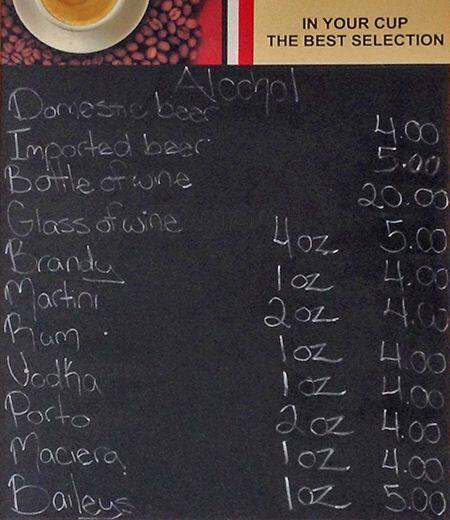 IN YOUR CUP
THE BEST SELECTION
Alcohol
Domestic beer 4.00
Imported beer 5.00
Bottle of wine 20.00
Glass of wine 4oz 5.00
Brandy 1oz 4.00
Martini 2oz 4.00
Rum 1oz 4.00
Vodha 1oz 4.00
Porto 2oz 4.00
Maciera 1oz 4.00
Baileys 1oz 5.00